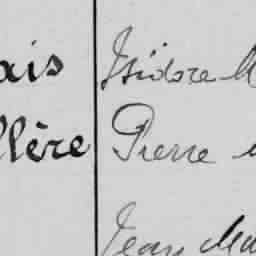 ais Isidore M
llère Pierre
Jean Ma